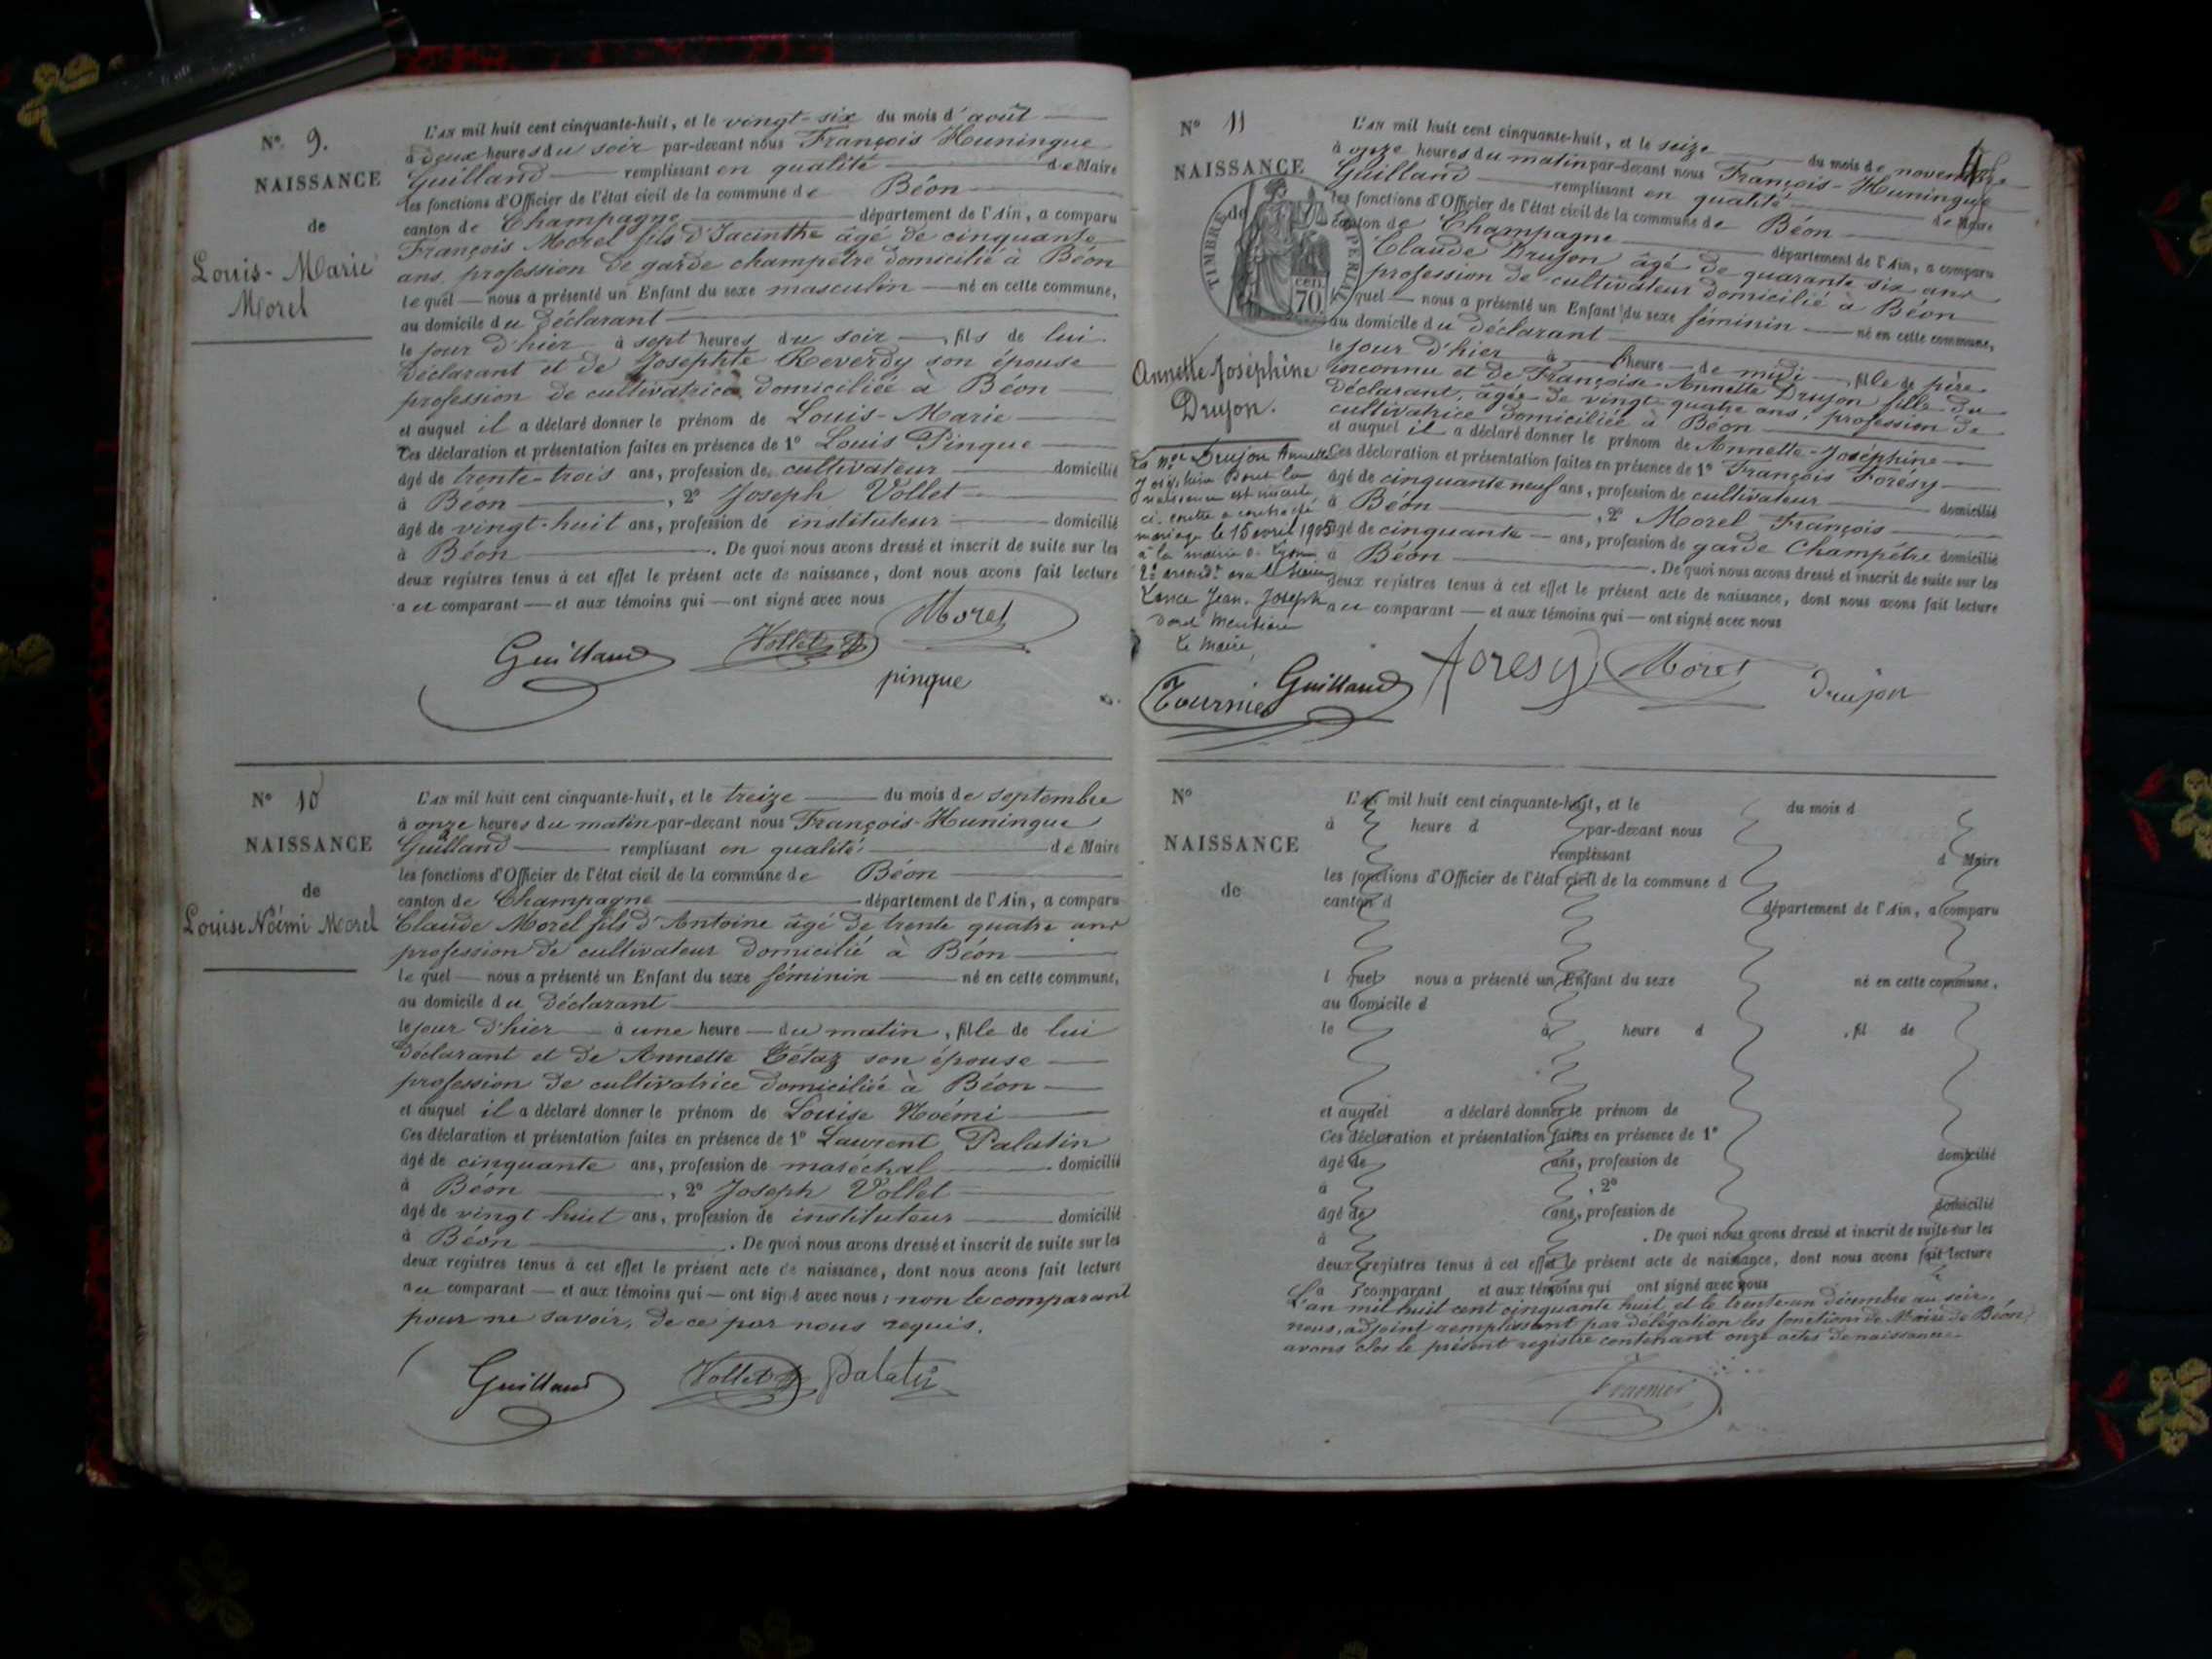 N° 9.
NAISSANCE
de
Louis-Marie
Morel
L'AN mil huit cent cinquante-huit, et le vingt-six du mois d'août
à deux heures du soir par-devant nous François Huningue
Guilland remplissant en qualité de Maire
les fonctions d'Officier de l'état civil de la commune de Béon
canton de Champagne département de l'Ain, a comparu
François Morel fils d'Jacinthe âgé de cinquante
ans profession de garde champêtre domicilié à Béon
lequel nous a présenté un Enfant du sexe masculin né en cette commune,
au domicile du déclarant
le jour d'hier à sept heures du soir, fils de lui
déclarant et de Josephte Reverdy son épouse
profession de cultivatrice domiciliée à Béon
et auquel il a déclaré donner le prénom de Louis-Marie
Ces déclaration et présentation faites en présence de 1° Louis Pingue
âgé de trente-trois ans, profession de cultivateur domicilié
à Béon, 2° Joseph Vollet
âgé de vingt-huit ans, profession de instituteur domicilié
à Béon. De quoi nous avons dressé et inscrit de suite sur les
deux registres tenus à cet effet le présent acte de naissance, dont nous avons fait lecture
au comparant et aux témoins qui ont signé avec nous
Morel
Guilland Vollet J
pingue
N° 10
NAISSANCE
de
Louise Noémi Morel
L'AN mil huit cent cinquante-huit, et le treize du mois de septembre
à onze heures du matin par-devant nous François-Huningue
Guilland remplissant en qualité de Maire
les fonctions d'Officier de l'état civil de la commune de Béon
canton de Champagne département de l'Ain, a comparu
Claude Morel fils d'Antoine âgé de trente quatre ans
profession de cultivateur domicilié à Béon
lequel nous a présenté un Enfant du sexe féminin né en cette commune,
au domicile du déclarant
le jour d'hier à une heure du matin, fille de lui
déclarant et de Annette Tétaz son épouse
profession de cultivatrice domiciliée à Béon
et auquel il a déclaré donner le prénom de Louise Noémi
Ces déclaration et présentation faites en présence de 1° Laurent Palatin
âgé de cinquante ans, profession de maréchal domicilié
à Béon, 2° Joseph Vollet
âgé de vingt huit ans, profession de instituteur domicilié
à Béon. De quoi nous avons dressé et inscrit de suite sur les
deux registres tenus à cet effet le présent acte de naissance, dont nous avons fait lecture
au comparant et aux témoins qui ont signé avec nous; non le comparant
pour ne savoir, de ce par nous requis.
Guilland Vollet J Palatin
N° 11
NAISSANCE
de
TIMBRE IMPERIAL
70 CEN.
Annette Joséphine
Drujon.
La née Drujon Annette
Joséphine dont la
naissance est inscrite
ci-contre a contracté
mariage le 15 avril 1905
à la mairie de Lyon
2e arrondt avec le sieur
Lance Jean-Joseph
dont mention
Le Maire,
Tournier
L'AN mil huit cent cinquante-huit, et le seize du mois de novembre
à onze heures du matin par-devant nous François-Huningue
Guilland remplissant en qualité de Maire
les fonctions d'Officier de l'état civil de la commune de Béon
canton de Champagne département de l'Ain, a comparu
Claude Drujon âgé de quarante six ans
profession de cultivateur domicilié à Béon
lequel nous a présenté un Enfant du sexe féminin né en cette commune,
au domicile du déclarant
le jour d'hier à heure de midi, fille de père
inconnu et de Françoise Annette Drujon fille du
déclarant, âgée de vingt-quatre ans, profession de
cultivatrice domiciliée à Béon
et auquel il a déclaré donner le prénom de Annette-Joséphine
Ces déclaration et présentation faites en présence de 1° François Forésy
âgé de cinquante neuf ans, profession de cultivateur domicilié
à Béon, 2° Morel François
âgé de cinquante ans, profession de garde Champêtre domicilié
à Béon. De quoi nous avons dressé et inscrit de suite sur les
deux registres tenus à cet effet le présent acte de naissance, dont nous avons fait lecture
au comparant et aux témoins qui ont signé avec nous
Guilland foresy Morel drujon
N°
NAISSANCE
de
L'AN mil huit cent cinquante-huit, et le du mois d
à heure d par-devant nous
remplissant d Maire
les fonctions d'Officier de l'état civil de la commune d
canton d département de l'Ain, a comparu
l quel nous a présenté un Enfant du sexe né en cette commune,
au domicile d
le à heure d, fil de
et auquel a déclaré donner le prénom de
Ces déclaration et présentation faites en présence de 1°
âgé de ans, profession de domicilié
à, 2°
âgé de ans, profession de domicilié
à. De quoi nous avons dressé et inscrit de suite sur les
deux registres tenus à cet effet le présent acte de naissance, dont nous avons fait lecture
a comparant et aux témoins qui ont signé avec nous
L'an mil huit cent cinquante huit et le trente-un décembre au soir,
nous, adjoint remplissant par délégation les fonctions de Maire de Béon,
avons clos le présent registre contenant onze actes de naissance